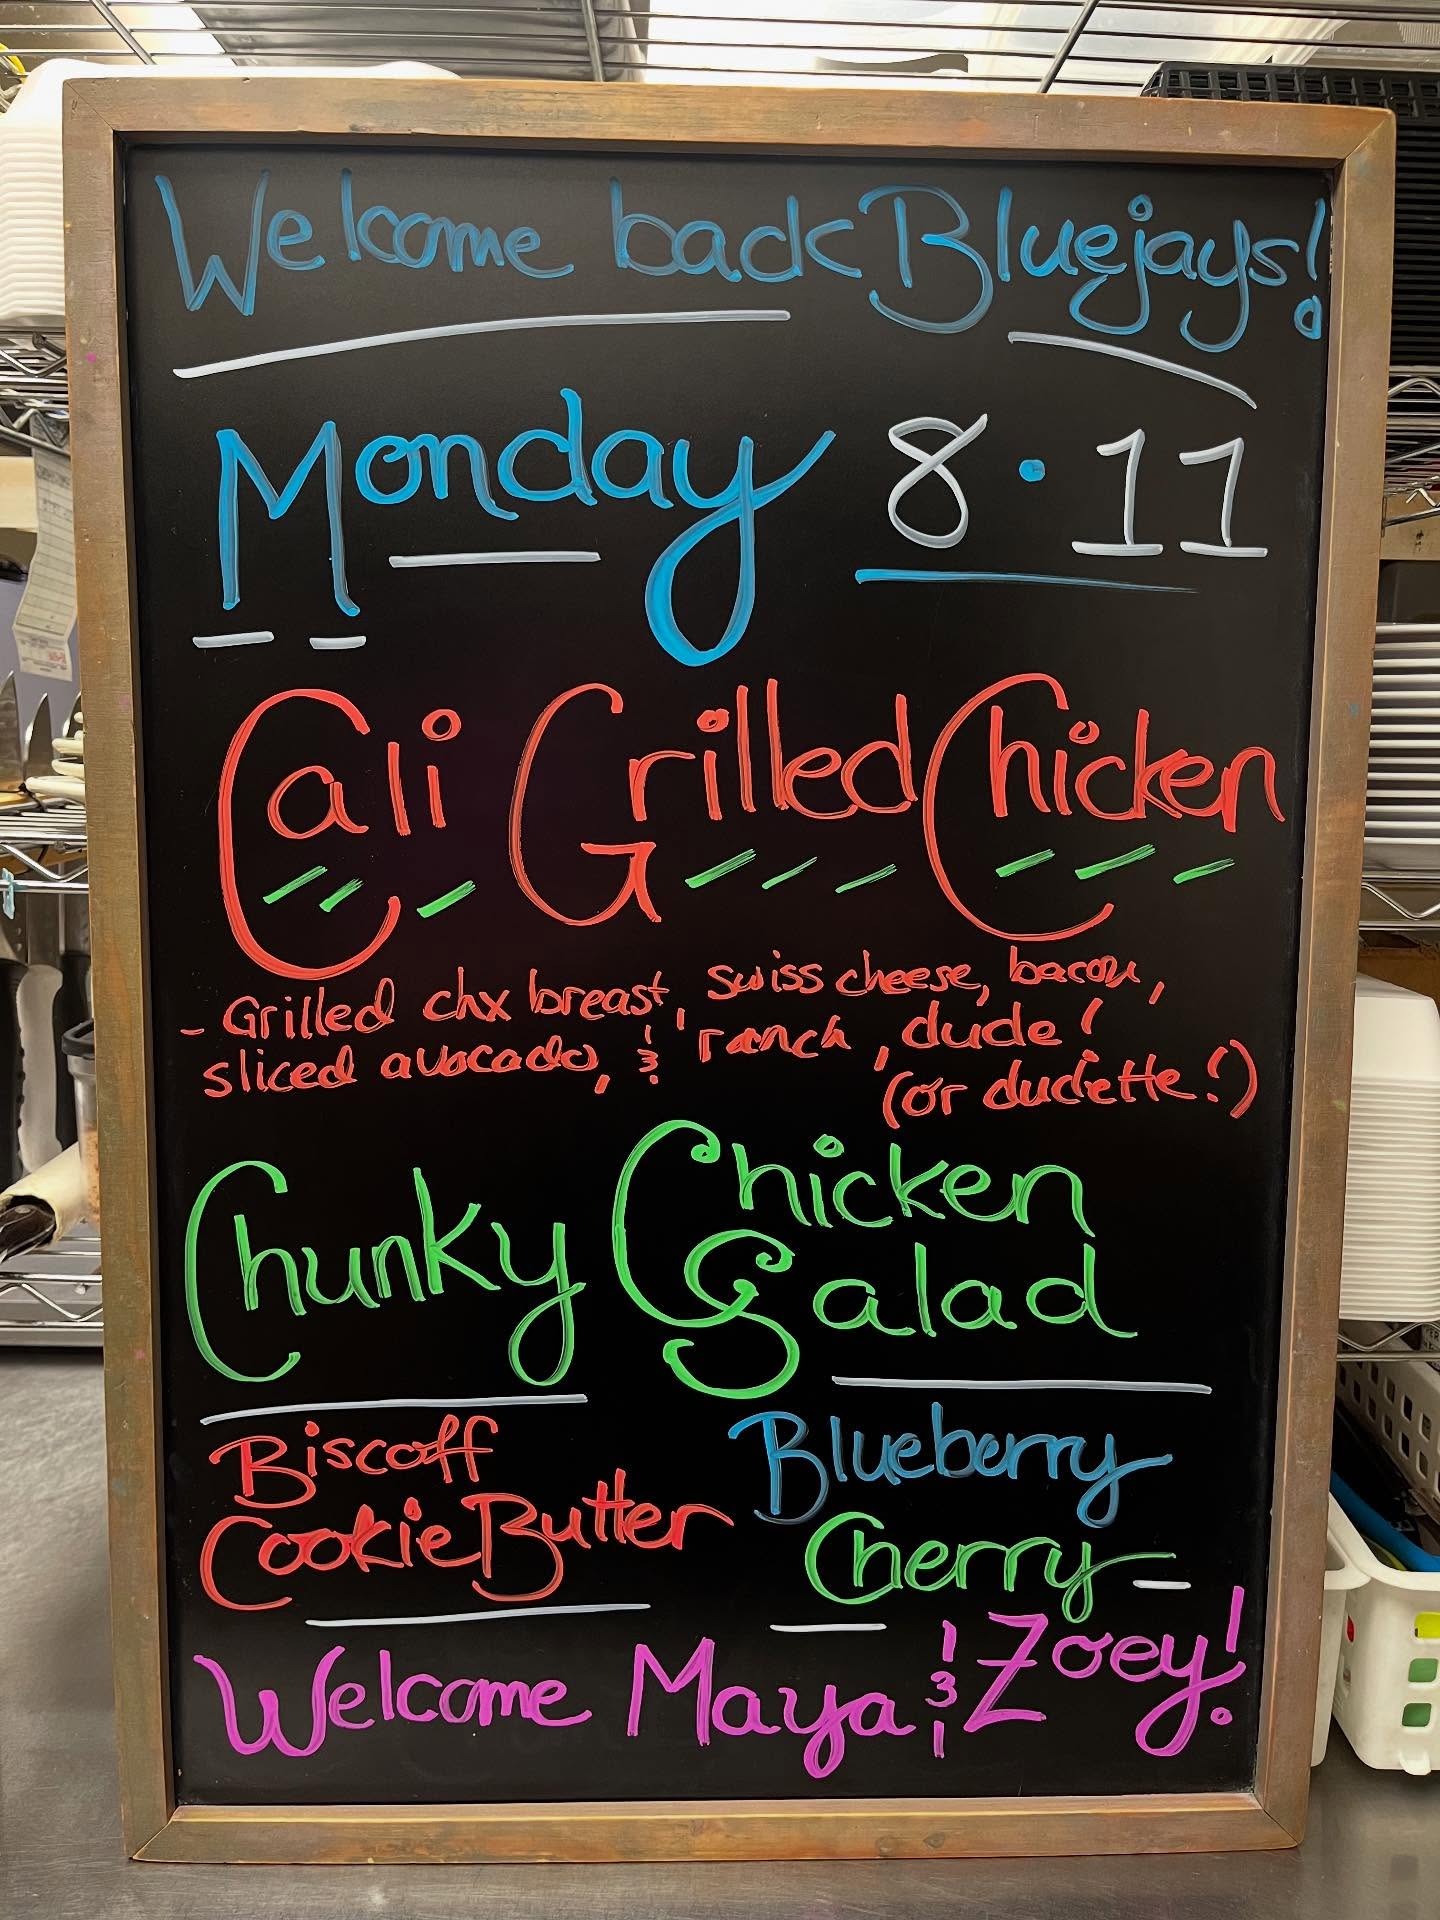 Welcome back Bluejays!
Monday 8·11
Cali Grilled Chicken
- Grilled chx breast, swiss cheese, bacon,
sliced avocado, & ranch, dude!
(or dudette!)
Chunky Chicken
Salad
Biscoff
Cookie Butter
Blueberry
Cherry
Welcome Maya & Zoey!